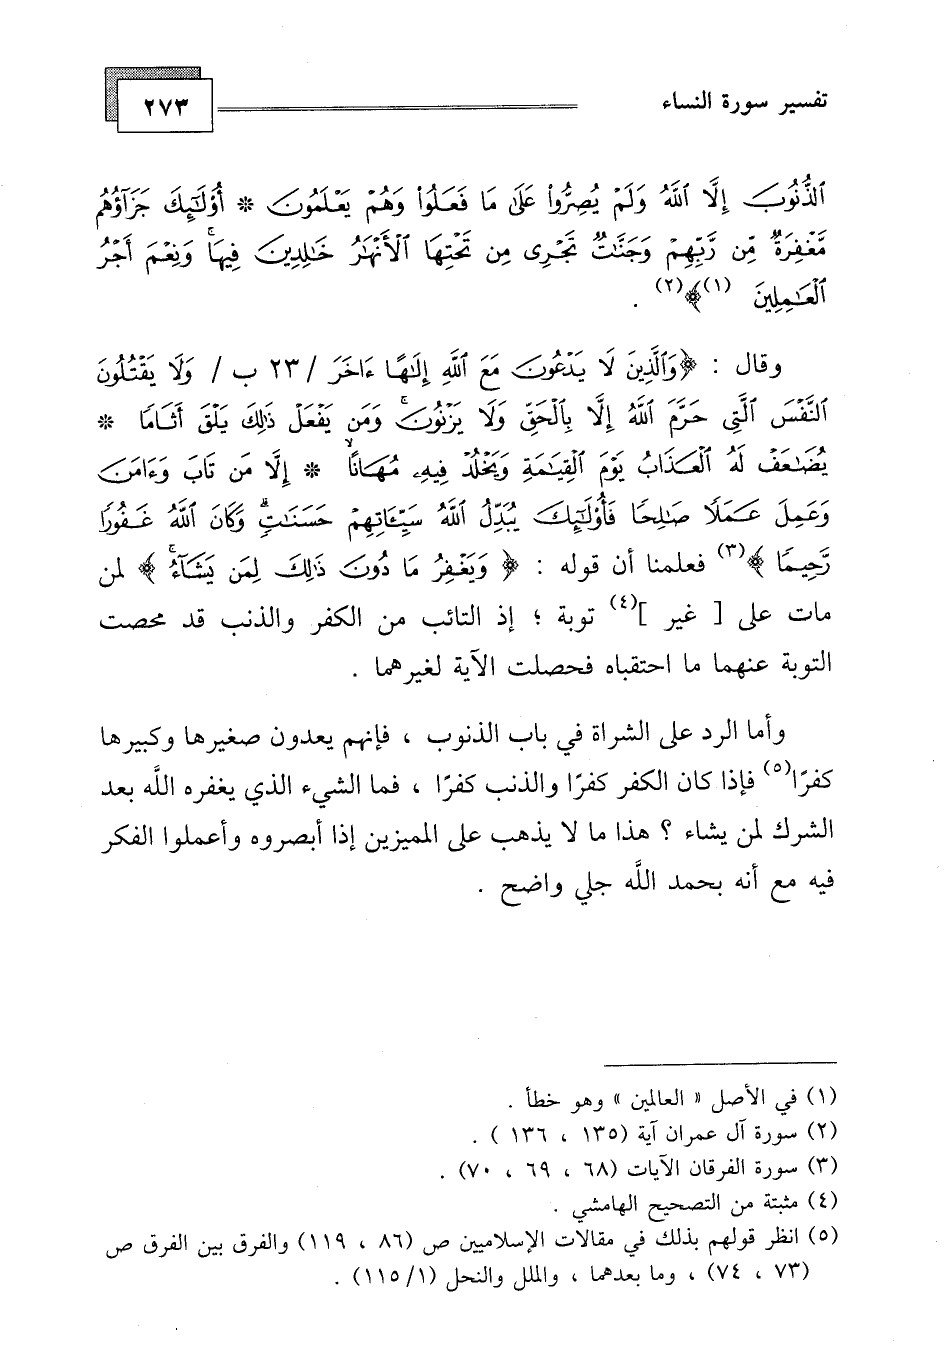 تفسير سورة النساء
٢٧٣
ٱلذُّنُوبَ إِلَّا ٱللَّهُ وَلَمْ يُصِرُّوا۟ عَلَىٰ مَا فَعَلُوا۟ وَهُمْ يَعْلَمُونَ * أُو۟لَـٰٓئِكَ جَزَآؤُهُم
مَّغْفِرَةٌ مِّن رَّبِّهِمْ وَجَنَّـٰتٌ تَجْرِى مِن تَحْتِهَا ٱلْأَنْهَـٰرُ خَـٰلِدِينَ فِيهَا ۚ وَنِعْمَ أَجْرُ
ٱلْعَـٰمِلِينَ (١)﴾(٢) .
وقال : ﴿وَٱلَّذِينَ لَا يَدْعُونَ مَعَ ٱللَّهِ إِلَـٰهًا ءَاخَرَ / ٢٣ ب / وَلَا يَقْتُلُونَ
ٱلنَّفْسَ ٱلَّتِى حَرَّمَ ٱللَّهُ إِلَّا بِٱلْحَقِّ وَلَا يَزْنُونَ ۚ وَمَن يَفْعَلْ ذَٰلِكَ يَلْقَ أَثَامًا *
يُضَـٰعَفْ لَهُ ٱلْعَذَابُ يَوْمَ ٱلْقِيَـٰمَةِ وَيَخْلُدْ فِيهِۦ مُهَانًا ۙ * إِلَّا مَن تَابَ وَءَامَنَ
وَعَمِلَ عَمَلًا صَـٰلِحًا فَأُو۟لَـٰٓئِكَ يُبَدِّلُ ٱللَّهُ سَيِّـَٔاتِهِمْ حَسَنَـٰتٍ ۗ وَكَانَ ٱللَّهُ غَفُورًا
رَّحِيمًا ﴾(٣) فعلمنا أن قوله : ﴿ وَيَغْفِرُ مَا دُونَ ذَٰلِكَ لِمَن يَشَآءُ ۚ ﴾ لمن
مات على [ غير ](٤) توبة ؛ إذ التائب من الكفر والذنب قد محصت
التوبة عنهما ما احتقباه فحصلت الآية لغيرهما .
وأما الرد على الشراة في باب الذنوب ، فإنهم يعدون صغيرها وكبيرها
كفرًا(٥) فإذا كان الكفر كفرًا والذنب كفرًا ، فما الشيء الذي يغفره اللَّه بعد
الشرك لمن يشاء ؟ هذا ما لا يذهب على المميزين إذا أبصروه وأعملوا الفكر
فيه مع أنه بحمد اللَّه جلي واضح .
(١) في الأصل « العالمين » وهو خطأ .
(٢) سورة آل عمران آية (١٣٥ ، ١٣٦ ) .
(٣) سورة الفرقان الآيات (٦٨ ، ٦٩ ، ٧٠) .
(٤) مثبتة من التصحيح الهامشي .
(٥) انظر قولهم بذلك في مقالات الإسلاميين ص (٨٦ ، ١١٩) والفرق بين الفرق ص
(٧٣ ، ٧٤) ، وما بعدهما ، والملل والنحل (١١٥/١) .